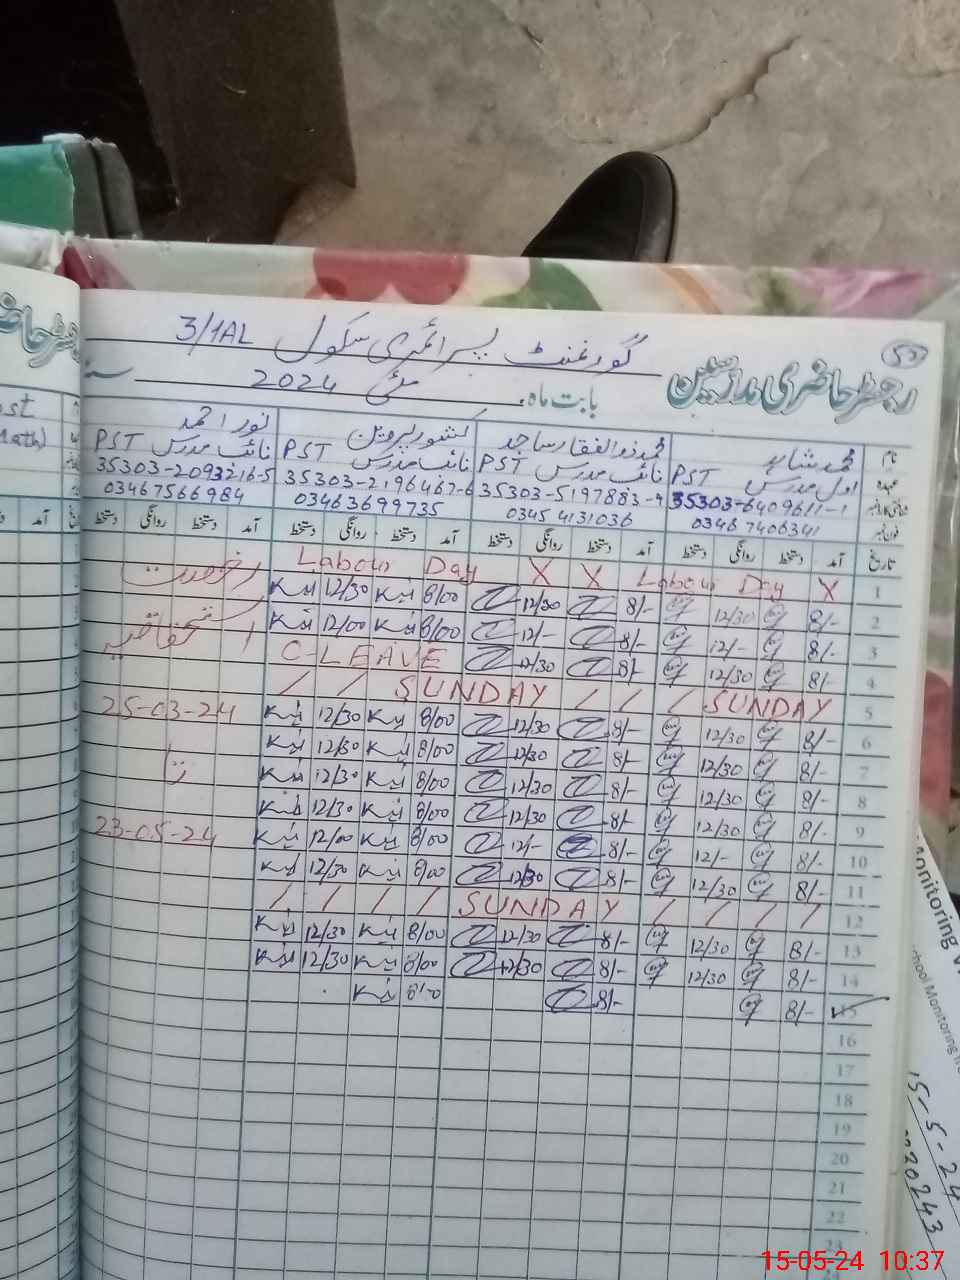 53
رجسٹر حاضری مدرسین
گورنمنٹ پرائمری سکول 3/1AL
بابت ماہ مئی 2024
نام محمد شاہد محمد ذوالفقار ساجد کشور پروین نور احمد
عہدہ اول مدرس PST نائب مدرس PST نائب مدرس PST نائب مدرس PST
35303-6409611-1 35303-5197883-9 35303-2196467-6 35303-2093216-5
فون نمبر 03467406341 0345 4131036 03463699735 03467566984
تاریخ آمد دستخط روانگی دستخط آمد دستخط روانگی دستخط آمد دستخط روانگی دستخط آمد دستخط روانگی دستخط
Labour Day X X Labour Day X 1
رخصت 12/30 8/00 12/30 8/- 12/30 8/- 2
12/00 8/00 12/- 8/- 12/- 8/- 3
C-LEAVE 12/30 8/- 12/30 8/- 4
/ / SUNDAY / / / SUNDAY 5
25-03-24 12/30 8/00 12/30 8/- 12/30 8/- 6
12/30 8/00 12/30 8/- 12/30 8/- 7
تا 12/30 8/00 12/30 8/- 12/30 8/- 8
12/30 8/00 12/30 8/- 12/30 8/- 9
23-05-24 12/00 8/00 12/- 8/- 12/- 8/- 10
12/30 8/00 12/30 8/- 12/30 8/- 11
/ / / / SUNDAY / / / / 12
12/30 8/00 12/30 8/- 12/30 8/- 13
12/30 8/00 12/30 8/- 12/30 8/- 14
8/- 8/- 15
16
17
18
19
20
21
22
23
Math)
آمد دستخط
Monitoring
School Monitoring
15-5-24
15-05-24 10:37